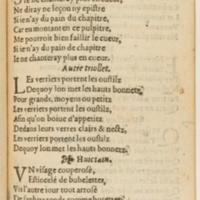 Ne diray ne leçon ny epistre
Si n'ay du pain du chapitre,
Car en montant en ce pulpitre,
Me pourroit bien faillir le cueur,
Si n'ay du pain du chapitre
Ie ne chanteray plus en cueur.
Autre triollet.
Les verriers portent les oustilz
Dequoy lon met les hauts bonnetz,
Pour grands, moyens ou petits
Les verriers portent les oustilz,
Afin qu'on boiue d'appetits
Dedans leurs verres clairs & netz,
Les verriers portent les oustilz
Dequoy lon met les hauts bonnetz.
Huictain.
VN visage couperosé,
Estincelé de bubelettes,
Vis l'autre iour tout arrosé